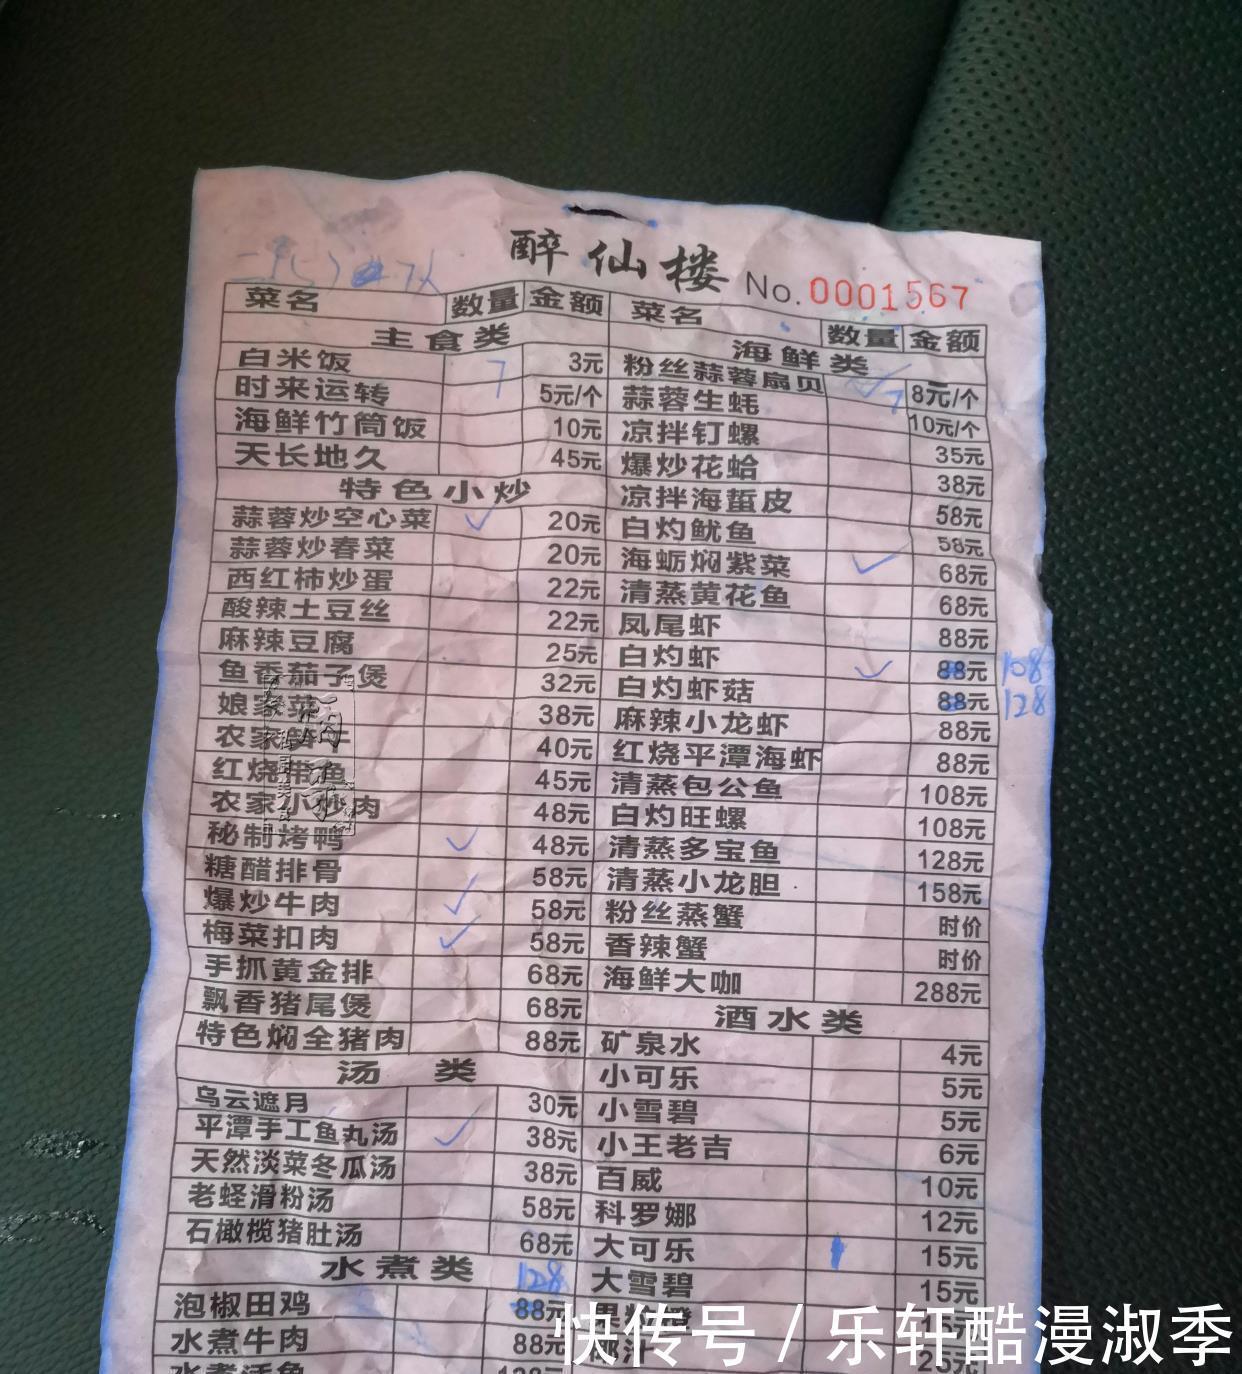 醉仙楼 No.0001567
菜名 数量 金额
主食类
白米饭 7 3元
时来运转 5元/个
海鲜竹筒饭 10元
天长地久 45元
特色小炒
蒜蓉炒空心菜 ✓ 20元
蒜蓉炒春菜 20元
西红柿炒蛋 22元
酸辣土豆丝 22元
麻辣豆腐 25元
鱼香茄子煲 32元
娘家菜 38元
农家 40元
红烧带鱼 45元
农家小炒肉 48元
秘制烤鸭 ✓ 48元
糖醋排骨 58元
爆炒牛肉 ✓ 58元
梅菜扣肉 ✓ 58元
手抓黄金排 68元
飘香猪尾煲 68元
特色焖全猪肉 88元
汤类
乌云遮月 30元
平潭手工鱼丸汤 ✓ 38元
天然淡菜冬瓜汤 38元
老蛏滑粉汤 58元
石橄榄猪肚汤 68元
水煮类 128
泡椒田鸡 88元
水煮牛肉 88元
水煮活鱼
菜名 数量 金额
海鲜类
粉丝蒜蓉扇贝 ✓ 7 8元/个
蒜蓉生蚝 10元/个
凉拌钉螺 35元
爆炒花蛤 38元
凉拌海蜇皮 58元
白灼鱿鱼 58元
海蛎焖紫菜 ✓ 68元
清蒸黄花鱼 68元
凤尾虾 88元
白灼虾 ✓ 88元 108
白灼虾菇 88元 128
麻辣小龙虾 88元
红烧平潭海虾 88元
清蒸包公鱼 108元
白灼旺螺 108元
清蒸多宝鱼 128元
清蒸小龙胆 158元
粉丝蒸蟹 时价
香辣蟹 时价
海鲜大咖 288元
酒水类
矿泉水 4元
小可乐 5元
小雪碧 5元
小王老吉 6元
百威 10元
科罗娜 12元
大可乐 15元
大雪碧 15元
椰汁
快传号 / 乐轩酷漫淑季